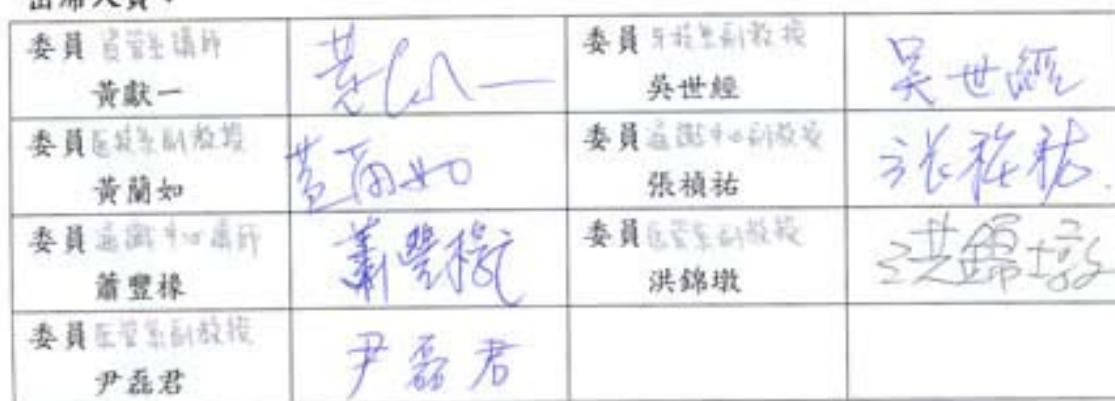 出席人員：
委員 資管系講師
黃獻一
委員 牙技系副教授
吳世經
吳世經
委員 医技系副教授
黃蘭如
黃蘭如
委員 通識中心副教授
張禎祐
張禎祐
委員 通識中心講師
蕭豐椽
蕭豐椽
委員 医管系副教授
洪錦墩
洪錦墩
委員 医管系副教授
尹磊君
尹磊君